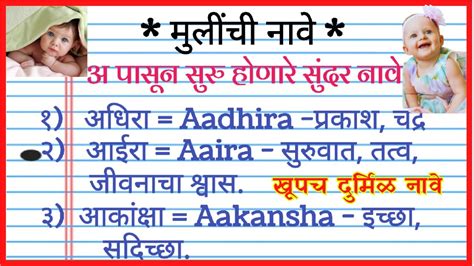 * मुलींची नावे *
अ पासून सुरु होणारे सुंदर नावे
१) अधिरा = Aadhira -प्रकाश, चद्र
२) आईरा = Aaira - सुरुवात, तत्व,
जीवनाचा श्वास. खूपच दुर्मिळ नावे
३) आकांक्षा = Aakansha - इच्छा,
सदिच्छा.